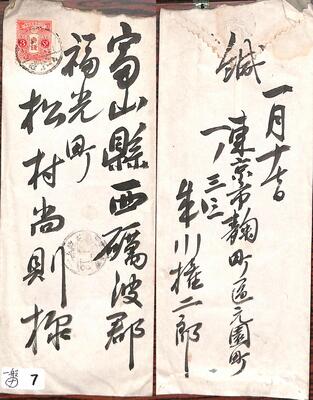 富山縣西礪波郡
福光町
松村尚則様
7
鍼
一月十七日
東京市麹町區元園町
一ノ三三
川権二郎